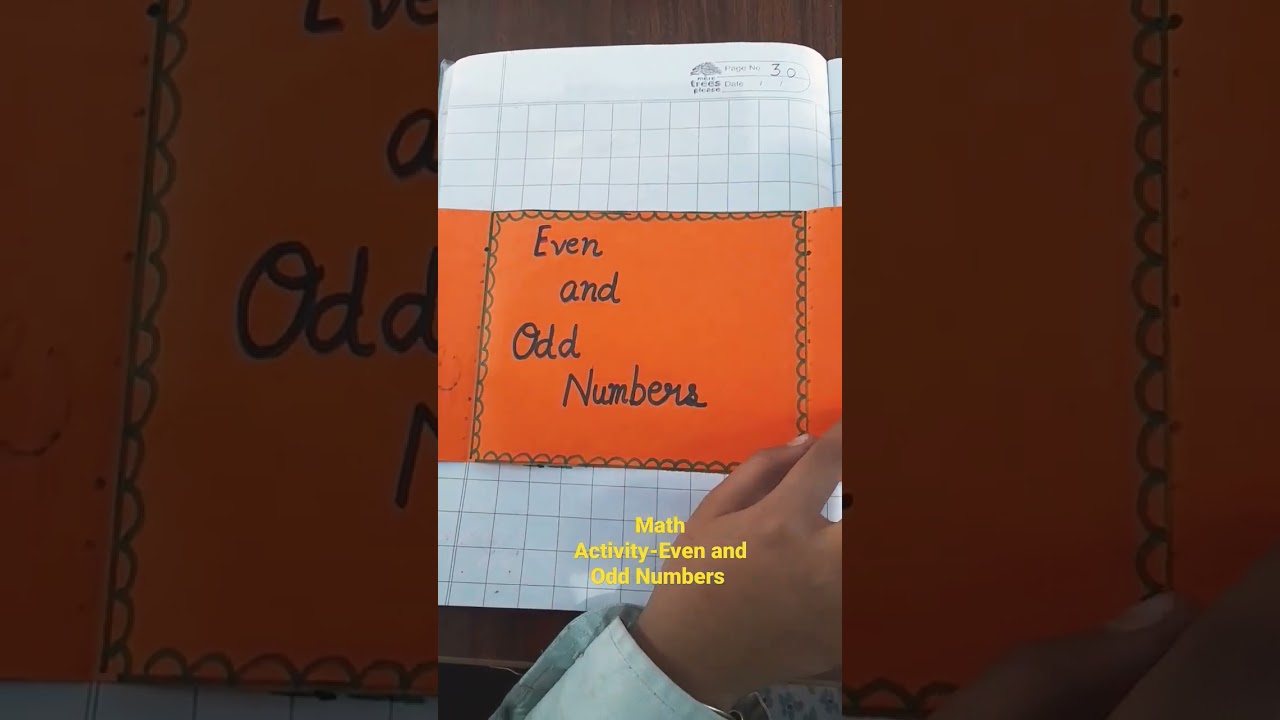 Page No 30
more
trees
please
Date / /
Even
and
Odd
Numbers
Math
Activity-Even and
Odd Numbers